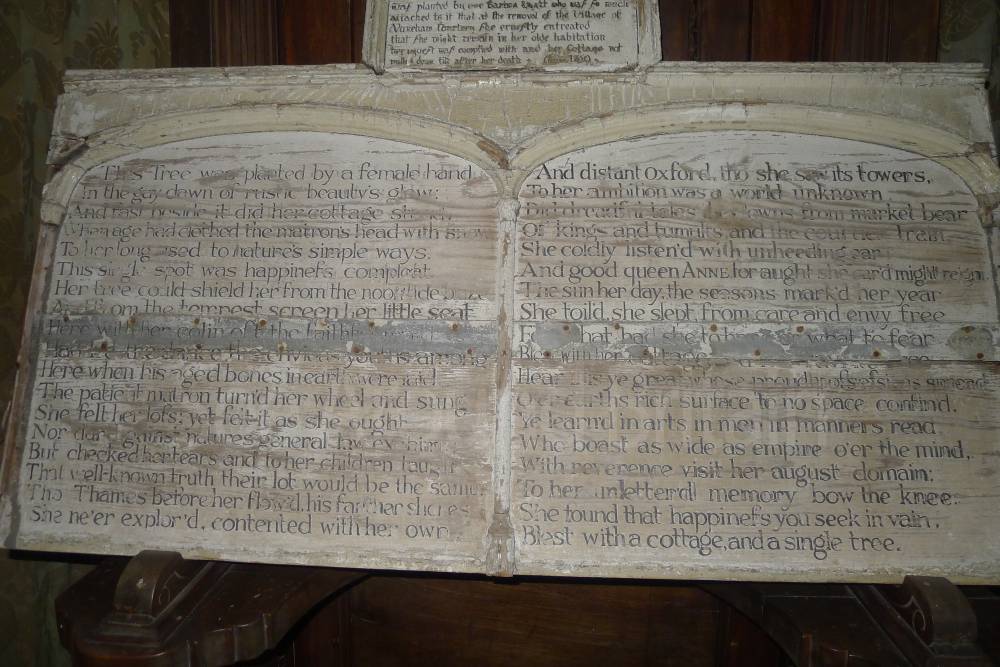 was planted by one Barbara Wyatt who was so much
attached to it that at the removal of the Village of
Nuneham Courtenay she earnestly entreated
that she might remain in her olde habitation
her request was complied with and her Cottage not
pulled down till after her death
This Tree was planted by a female hand
In the gay dawn of rustic beauty's glow;
And fast beside it did her cottage
When age had clothed the matron's head with snow
To her long used to nature's simple ways,
This single spot was happineſs compleat
Her tree could shield her from the noontide
And from the tempest screen her little seat
Here with her colin oft the
the dance the envious among
Here when his aged bones in earth were laid
The patient matron turn'd her wheel and sung
She felt her loſs; yet felt it as she ought
Nor dare gainst natures general law
But checked her tears and to her children taught
That well-known truth their lot would be the same
Tho Thames before her flow'd, his farther shores
She ne'er explor'd, contented with her own
And distant Oxford, tho she saw its towers,
To her ambition was a world unknown
Did dreadful tales the clowns from market bear
Of kings and tumults and the courtier train
She coldly listen'd with unheeding ear
And good queen ANNE for aught she car'd might reign
The sun her day, the seasons mark'd her year
She toild, she slept, from care and envy free
For what had she to hope or what to fear
Blest with her cottage
Hear this ye great whose proud
O'er earths rich surface to no space confind.
Ye learn'd in arts in men in manners read
Who boast as wide an empire o'er the mind,
With reverence visit her august domain;
To her unletterd memory bow the knee
She found that happineſs you seek in vain,
Blest with a cottage, and a single tree.